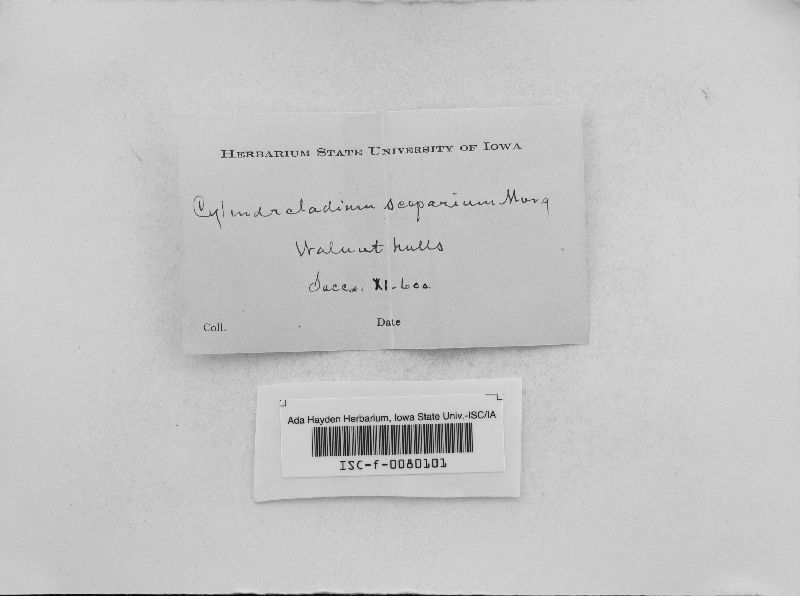 HERBARIUM STATE UNIVERSITY OF IOWA
Cylindrcladium scoparium Morg
Walnut hulls
Sacc. XI-600.
Coll. Date
Ada Hayden Herbarium, Iowa State Univ.-ISC/IA
ISC-f-0080101